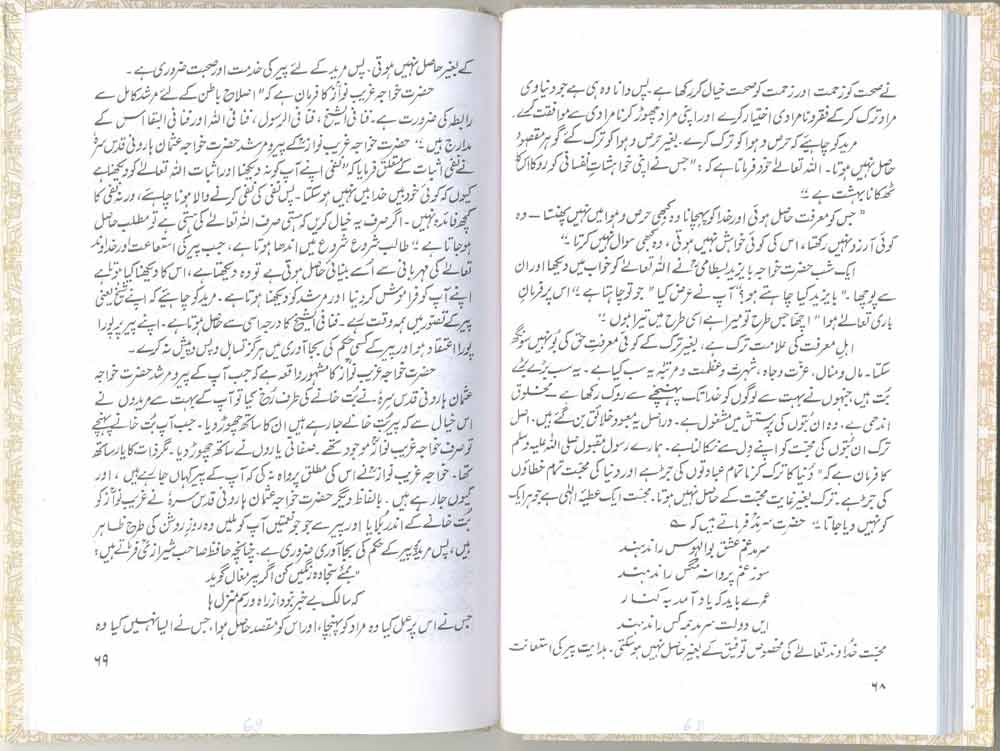 نے صحت کو زحمت اور زحمت کو صحت خیال کر رکھا ہے۔ پس دانا وہ ہی ہے جو دنیاوی
مراد ترک کر کے فقر و نامرادی اختیار کرے اور اپنی مراد چھوڑ کر نامرادی سے موافقت کرے۔
مرید کو چاہیئے کہ حرص و ہوا کو ترک کرے۔ بغیر حرص و ہوا کو ترک کئے گوہر مقصود
حاصل نہیں ہوتا۔ اللہ تعالےٰ خود فرماتا ہے کہ: "جس نے اپنی خواہشاتِ نفسانی کو روکا اس کا
ٹھکانا بہشت ہے"
"جس کو معرفت حاصل ہوئی اور خدا کو پہچانا وہ کبھی حرص و ہوا میں نہیں پھنستا — وہ
کوئی آرزو نہیں رکھتا، اس کی کوئی خواہش نہیں ہوتی، وہ کبھی سوال نہیں کرتا"
ایک شب حضرت خواجہ بایزید بسطامیؒ نے اللہ تعالےٰ کو خواب میں دیکھا اور ان
سے پوچھا۔ "بایزید کیا چاہتے ہو؟" آپ نے عرض کیا "جو تو چاہتا ہے" اس پر فرمانِ
باری تعالےٰ ہوا "اچھا جس طرح تو میرا ہے اسی طرح میں تیرا ہوں"
اہلِ معرفت کی علامت ترک ہے، بغیر ترک کے کوئی معرفتِ حق کی بُو نہیں سونگھ
سکتا۔ مال و منال، عزّت و جاہ، شہرت و عظمت و مرتبہ یہ سب کیا ہے۔ یہ سب بڑے بڑے
بُت ہیں جنہوں نے بہت سے لوگوں کو خدا تک پہنچنے سے روک رکھا ہے۔ مخلوق
اندھی ہے، وہ ان بُتوں کی پرستش میں مشغول ہے۔ دراصل یہ معبودِ خلائق بن گئے ہیں۔ اصل
ترک ان بُتوں کی محبّت کو اپنے دِل سے نکالنا ہے۔ ہمارے رسول مقبول صلی اللہ علیہ وسلم
کا فرمان ہے کہ "دُنیا کا ترک کرنا تمام عبادتوں کی جڑ ہے اور دنیا کی محبّت تمام خطاؤں
کی جڑ ہے۔ ترک بغیر غایت محبّت کے حاصل نہیں ہوتا۔ محبّت ایک عطیۂ الٰہی ہے جو ہر ایک
کو نہیں دیا جاتا" حضرت سرمدؒ فرماتے ہیں کہ ے
سرمد غمِ عشق بوالہوس را ندہند
سوزِ غمِ پروانہ مگس را ندہند
عمرے باید کہ یار آید بہ کنار
ایں دولتِ سرمد ہمہ کس را ندہند
محبّت خُداوند تعالےٰ کی مخصوص توفیق کے بغیر حاصل نہیں ہو سکتی۔ ہدایت پیر کی استعانت
۶۸
کے بغیر حاصل نہیں ہوتی۔ پس مرید کے لئے پیر کی خدمت اور صحبت ضروری ہے۔
حضرت خواجہ غریب نوازؒ کا فرمان ہے کہ "اصلاحِ باطن کے لئے مرشد کامل سے
رابطہ کی ضرورت ہے۔ فنا فی الشیخ، فنا فی الرسول، فنا فی اللہ اور فنا فی البقا اس کے
مدارج ہیں" حضرت خواجہ غریب نوازؒ کے پیر و مرشد حضرت خواجہ عثمان ہارونی قدس سرہٗ
نے نفی اثبات کے متعلق فرمایا کہ "نفی اپنے آپ کو نہ دیکھنا اور اثبات اللہ تعالےٰ کو دیکھنا ہے
کیوں کہ کوئی خود بیں خدا بیں نہیں ہو سکتا۔ پس نفی کی نفی کرنے والا ہونا چاہئے، ورنہ نفی کا
کچھ فائدہ نہیں۔ اگر صرف یہ خیال کریں کہ ہستی صرف اللہ تعالےٰ کی ہستی ہے تو مطلب حاصل
ہو جاتا ہے" طالب شروع شروع میں اندھا ہوتا ہے، جب پیر کی استعاعت اور خداوند
تعالےٰ کی مہربانی سے اُسے بینائی حاصل ہوتی ہے تو وہ دیکھتا ہے، اس کا دیکھنا کیا ہوتا ہے
اپنے آپ کو فراموش کر دینا اور مرشد کو دیکھنا ہوتا ہے۔ مرید کو چاہئیے کہ اپنے شیخ یعنی
پیر کے تصور میں ہمہ وقت رہے۔ فنا فی الشیخ کا درجہ اسی سے حاصل ہوتا ہے۔ اپنے پیر پر پورا
پورا اعتقاد ہو اور پیر کے کسی حکم کی بجا آوری میں ہرگز تساہل و پس و پیش نہ کرے۔
حضرت خواجہ غریب نوازؒ کا مشہور واقعہ ہے کہ جب آپ کے پیر و مرشد حضرت خواجہ
عثمان ہارونی قدس سرہٗ نے بُت خانے کی طرف رُخ کیا تو آپ کے بہت سے مریدوں نے
اس خیال سے کہ پیر بُت خانے جا رہے ہیں ان کا ساتھ چھوڑ دیا۔ جب آپ بُت خانے پہنچے
تو صرف خواجہ غریب نوازؒ موجود تھے۔ صفاتی یاروں نے ساتھ چھوڑ دیا۔ مگر ذات کا یار ساتھ
تھا۔ خواجہ غریب نوازؒ نے اس کی مطلق پرواہ نہ کی کہ آپ کے پیر کہاں جا رہے ہیں، اور
کیوں جا رہے ہیں۔ بالفاظ دیگر حضرت خواجہ عثمان ہارونی قدس سرہٗ نے غریب نوازؒ کو
بُت خانے کے اندر بُلایا اور پیر سے جو جو نعمتیں آپ کو ملیں وہ روزِ روشن کی طرح ظاہر
ہیں، پس مرید کو پیر کے حکم کی بجا آوری ضروری ہے۔ چنانچہ حافظ صاحب شیرازیؒ فرماتے ہیں:
"بمئے سجادہ رنگیں کن اگر پیر مغاں گوید
کہ سالک بے خبر نبود ز راہ و رسمِ منزل ہا
جس نے اس پر عمل کیا وہ مراد کو پہنچا، اور اس کو مقصد حاصل ہوا، جس نے ایسا نہیں کیا وہ
۶۹